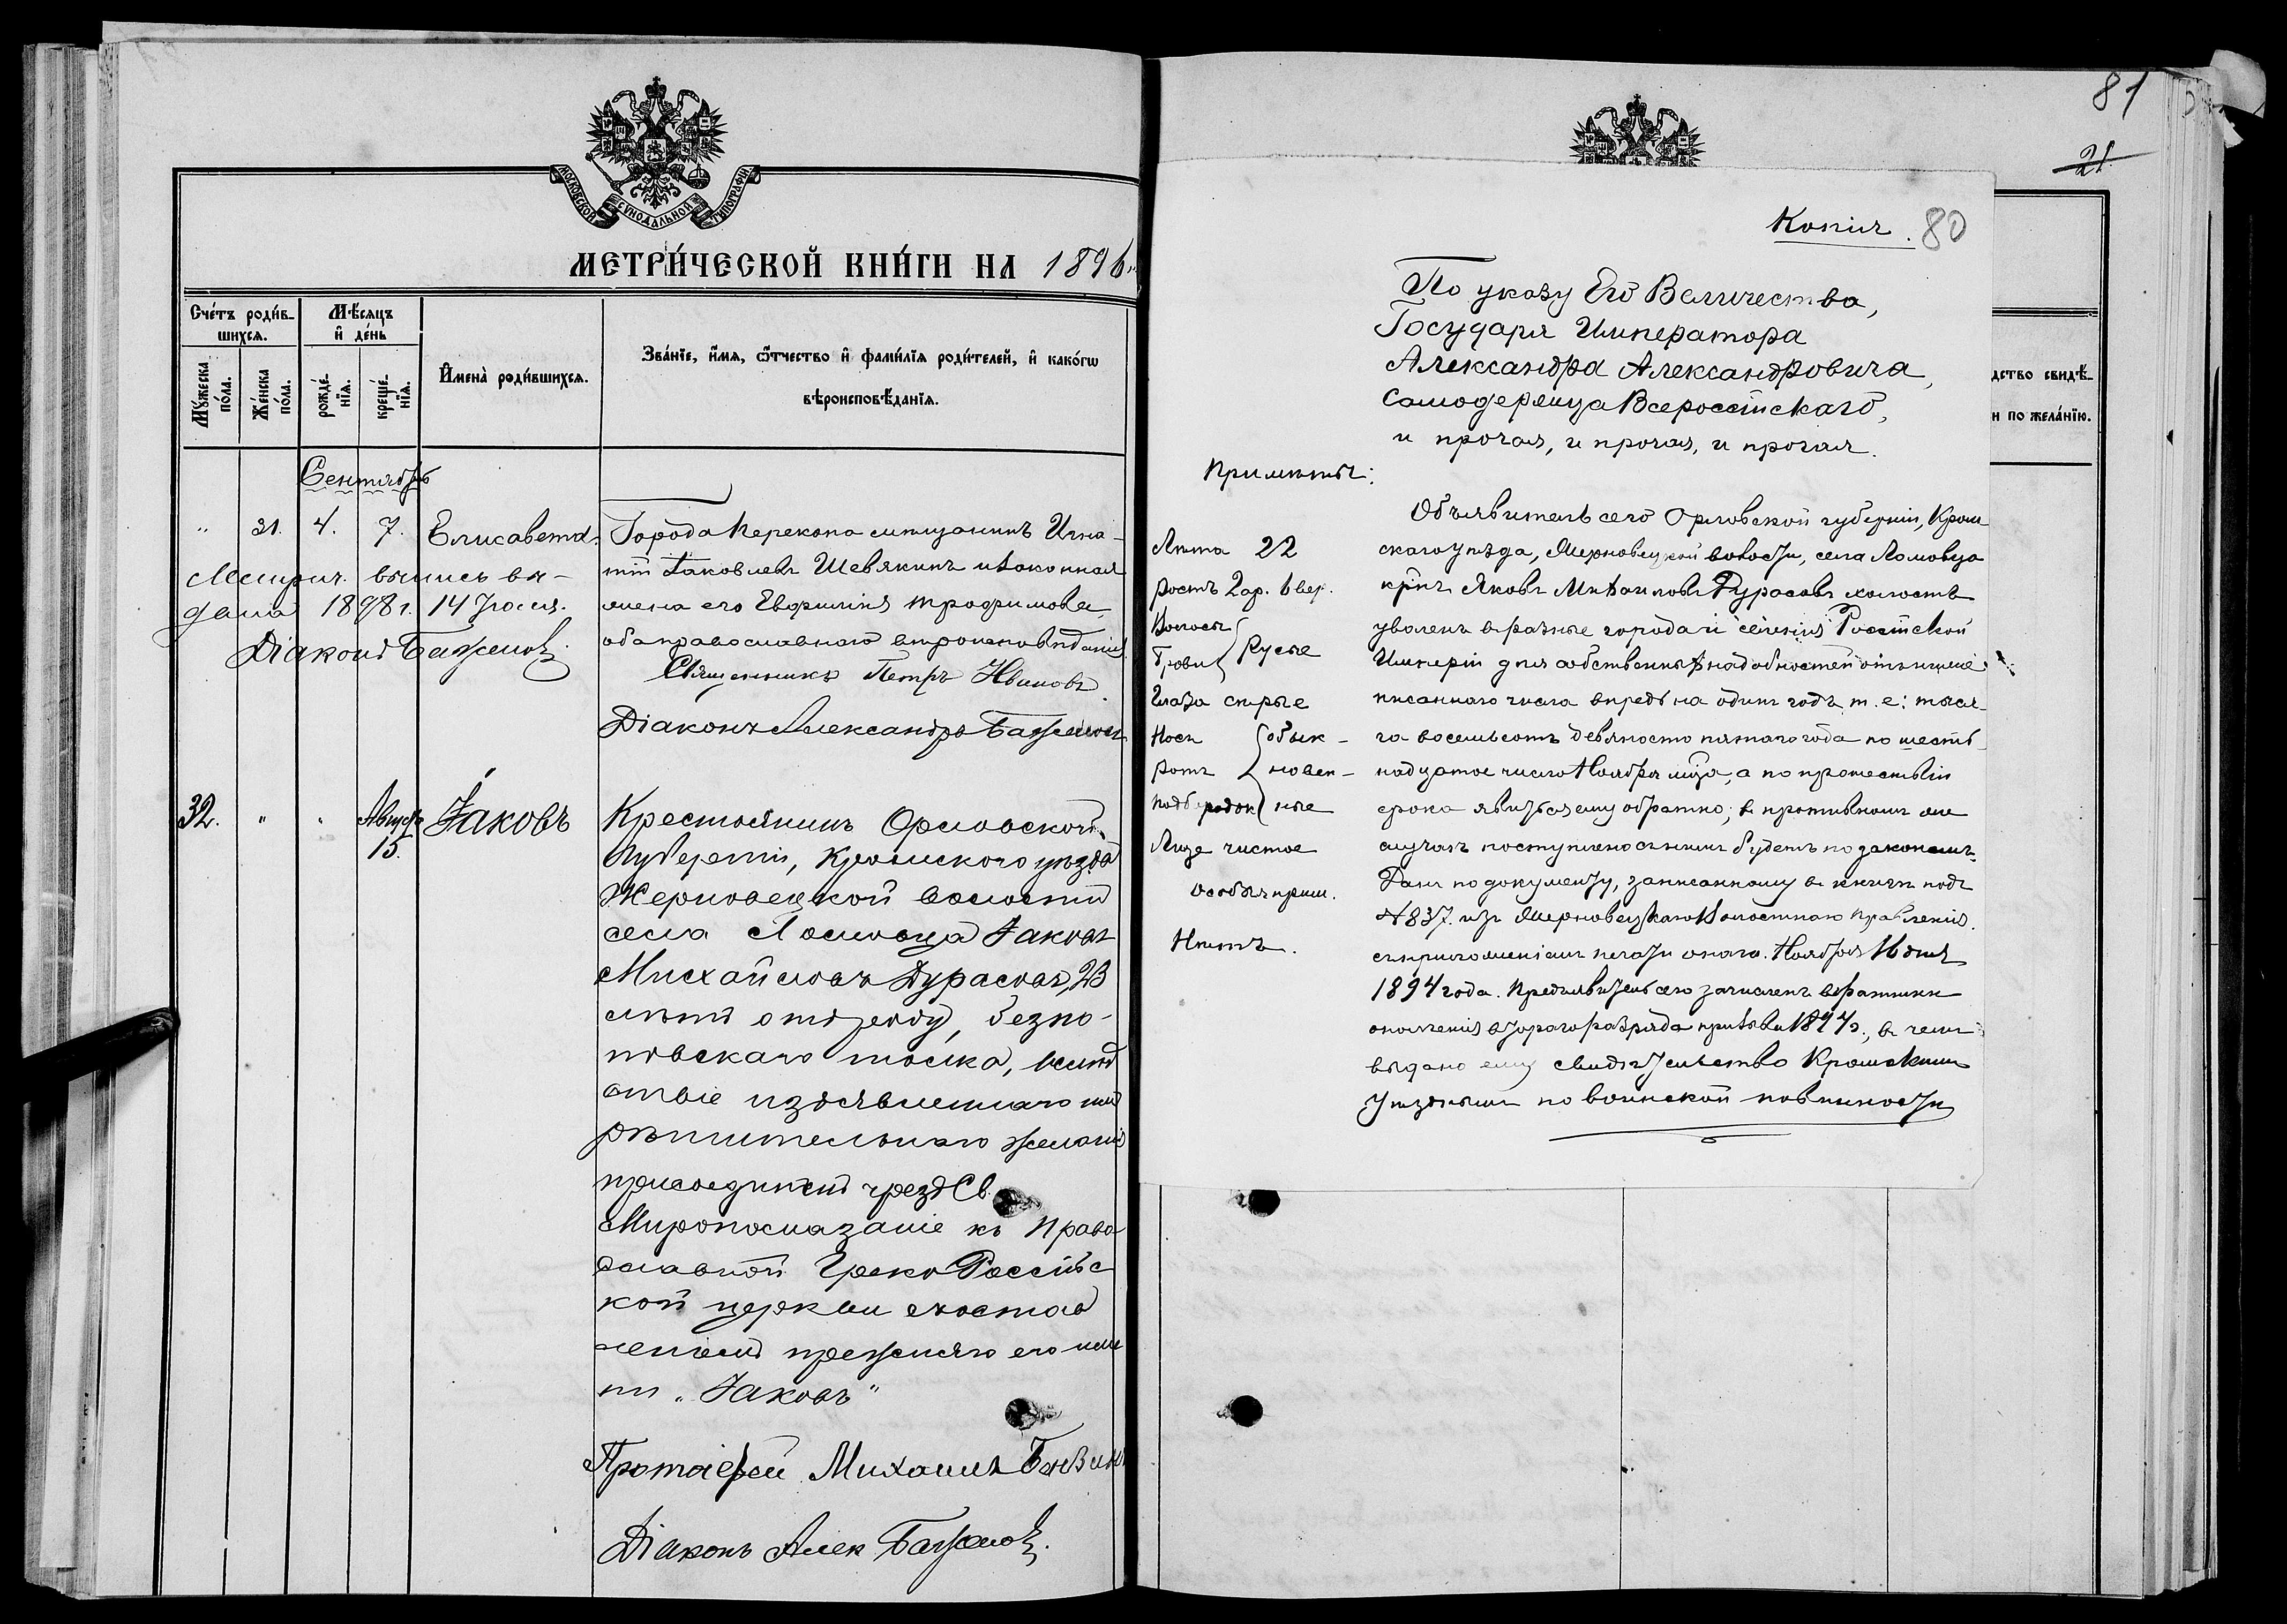 МОСКОВСКОЙ СѴНОДАЛЬНОЙ ТИПОГРАФІИ
МЕТРИ́ЧЕСКОЙ КНИ́ГИ НА 1896
Сче́тъ роди́в-
шихсѧ.
Мѣ́сѧцъ
и҆ де́нь
Мꙋ́жеска
по́ла.
Же́нска
по́ла.
рожде́-
нїѧ.
креще́-
нїѧ.
И҆мена̀ роди́вшихсѧ.
Зва́нїе, и҆́мѧ, ѻ҆́тчество и҆ фами́лїѧ роди́телей, и҆ како́гѡ
вѣроисповѣ́данїѧ.
Сентябрь
" 31. 4. 7. Елисавета.
Города Перекопа мѣщанинъ Игна-
тій Іаковлевъ Шевякинъ и законная
жена его Евфимія Трофимова,
оба православнаго вѣроисповѣданія.
Священникъ Петръ Ивановъ
Діаконъ Александръ Баженовъ
Метрич. выпись вы-
дана 1898 г. 14 Іюля.
Діаконъ Баженовъ
32. " " Августъ 15. Іаковъ
Крестьянинъ Орловской
Губерніи, Кромскаго уѣзда
Жерновецкой волости
села Ломовца Іаковъ
Михайловъ Дурасовъ, 23
лѣтъ отъ роду, безпо-
повскаго толка, вслѣд
ствіе изъявленнаго имъ
рѣшительнаго желанія
присоединенъ чрезъ Св.
Миропомазаніе къ Право
славной Греко Россійс
кой церкви съ остав
леніемъ прежняго его име
ни „Іаковъ"
Протоіерей Михаилъ
Діаконъ Алек Баженовъ.
81
21
Копія. 80
По указу Его Величества,
Государя Императора
Александра Александровича,
Самодержца Всероссійскаго,
и прочая, и прочая, и прочая.
Примѣты:
Лѣта 22
Ростъ 2 ар. 6 вер.
Волосы
Брови } Русые
Глаза сѣрые
Носъ { обык-
Ротъ { новен-
Подбородок { ные
Лице чистое
Особыя прим.
Нѣтъ.
Объявитель сего Орловской губерніи, Кром-
скаго уѣзда, Жерновецкой волости, села Ломовца
кр-нъ Яковъ Михаиловъ Дурасовъ холостъ
уволенъ въ разные города и селенія Россійской
Имперіи для собственныхъ надобностей отъ ниже
писаннаго числа впредь на одинъ годъ, т. е: тыся-
ча восемьсотъ девяносто пятаго года по шест-
надцатое число Ноября м-ца, а по прошествіи
срока явиться ему обратно; въ противномъ же
случаѣ поступлено съ нимъ будетъ по законамъ.
Данъ по документу, записанному въ книгѣ подъ
№ 837. изъ Жерновецкаго Волостнаго Правленія.
съ приложеніемъ печати онаго. Ноября 16 дня
1894 года. Предъявитель сего зачисленъ въ ратники
ополченія втораго разряда призыва 1894 г., въ чемъ
выдано ему свидѣтельство Кромскимъ
Уѣзднымъ по воинской повинности
дство свидѣ-
и по жела́нїю.